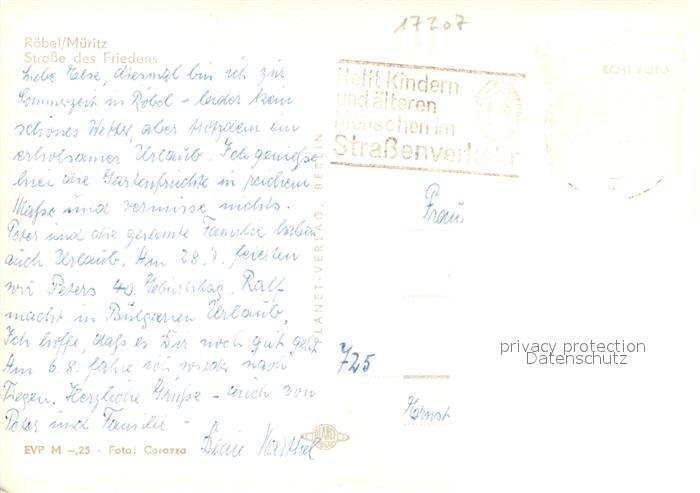 17207
Röbel/Müritz
Straße des Friedens
Liebe Else, diesmal bin ich zur
Sommerzeit in Röbel - leider kein
schönes Wetter, aber trotzdem ein
erholsamer Urlaub. Ich genieße
hier die Gartenfrüchte in reichem
Maße und vermisse nichts.
Peter und die gesamte Familie haben
auch Urlaub. Am 28.7. feierten
wir Peters 40. Geburtstag. Ralf
macht in Bulgarien Urlaub.
Ich hoffe, daß es Dir noch gut geht.
Am 6.8. fahre ich wieder nach
Herzliche Grüße - auch von
Peter und Familie -
Deine
EVP M -,25 · Foto: Corazza
PLANET-VERLAG, BERLIN
PLANET
Helft Kindern
und älteren
Menschen im
Straßenverkehr
ECHT FOTO
Frau
725
Ernst
privacy protection
Datenschutz